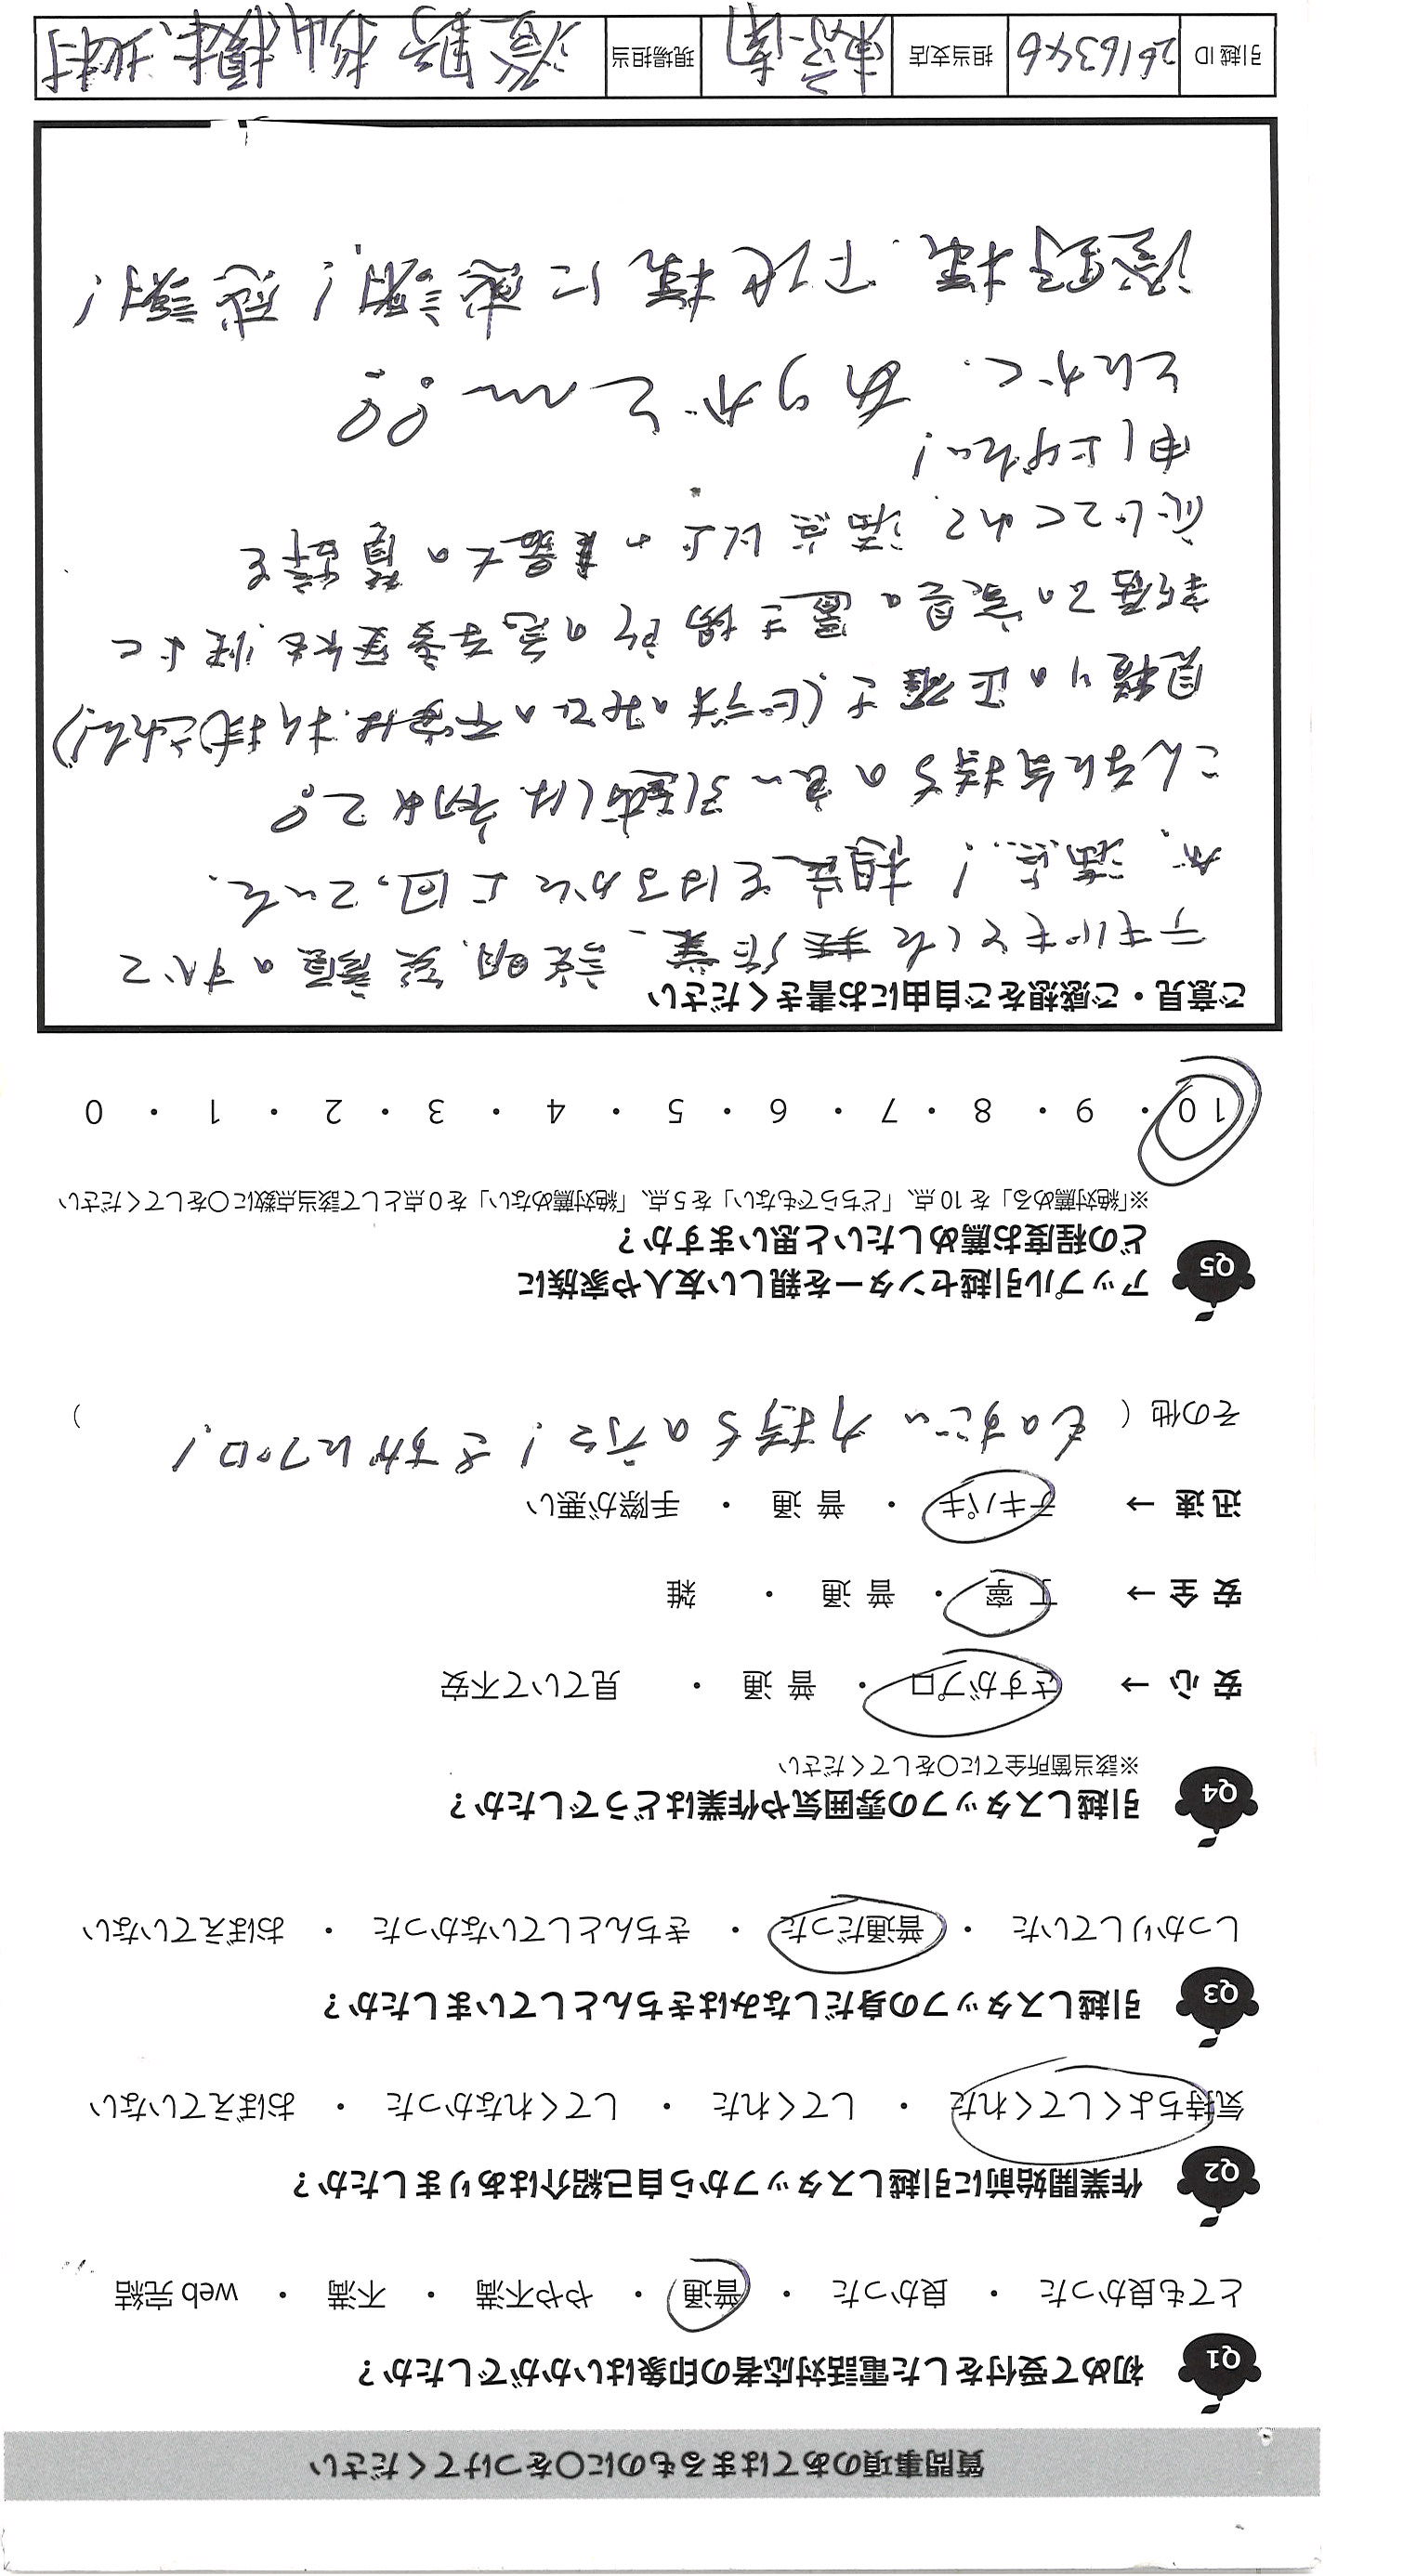 質問事項のあてはまるものに○をつけてください
Q1 初めて受付をした電話対応者の印象はいかがでしたか？
とても良かった ・ 良かった ・ 普通 ・ やや不満 ・ 不満 ・ web 完結
Q2 作業開始前に引越しスタッフから自己紹介はありましたか？
気持ちよくしてくれた ・ してくれた ・ してくれなかった ・ おぼえていない
Q3 引越しスタッフの身だしなみはきちんとしていましたか？
しっかりしていた ・ 普通だった ・ きちんとしていなかった ・ おぼえていない
Q4 引越しスタッフの雰囲気や作業はどうでしたか？
※該当箇所全てに○をしてください
安 心 → さすがプロ ・ 普 通 ・ 見ていて不安
安 全 → 丁 寧 ・ 普 通 ・ 雑
迅 速 → テキパキ ・ 普 通 ・ 手際が悪い
その他（ ものすごい力持ちの方で！さすがにプロ！ ）
Q5 アップル引越センターを親しい友人や家族に
どの程度お薦めしたいと思いますか？
※「絶対薦める」を 10 点、「どちらでもない」を 5 点、「絶対薦めない」を 0 点として該当点数に○をしてください
10 ・ 9 ・ 8 ・ 7 ・ 6 ・ 5 ・ 4 ・ 3 ・ 2 ・ 1 ・ 0
ご意見・ご感想をご自由にお書きください
テキパキとした 作業、説明、笑顔のすべて
が、満点！想定をはるかに上回っていた。
こんなに気持ちの良い引越しは初めて。
見積りの正確さ（ビデオのみでの不安は、払拭された！）
新居での家具の置き場所の急な変更にも快よく
応じてくれて、満点以上の最大の賛辞を
申し上げたい！
とにかく、ありがとー!!
澄野様、下地様に感謝！感謝！
引越 ID 2616346 担当支店 東京南 現場担当 澄野 杉山 横本、北村